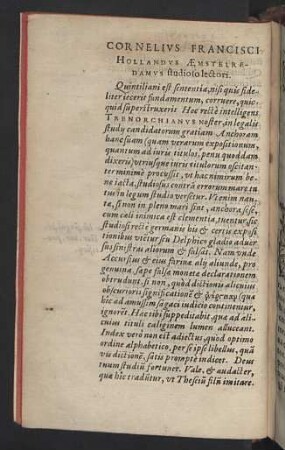 CORNELIVS FRANCISCI
HOLLANDVS ÆMSTELRE-
DAMVS studioso lectori.
Quintiliani est sententia, nisi quis fide-
liter iecerit fundamentum, corruere, quic-
quid superstruxeris. Hoc rectè intelligens
TRENORCHIANVS noster, in legalis
studij candidatorum gratiam Anchoram
hanc suam (quam verarum expositionum,
quantum ad iuris titulos, penu quoddam
dixeris) verùmque iuris titulorum
termine procussit, vt hac nimirum be-
ne iacta, studiosus contrà errorum mare tu-
tus in legum studio versetur. Vt enim nau-
ta, si non in pleno mari sine, anchora, si se-
cum cæli inimica est clementia, tuentur, sic
studiosi rectè germanis his & certis exposi-
tionibus
sus sinistras aliorum & falsas. Nam vnde
Accursius & eius farinæ alij aliunde, pro
genuina, sæpe falsa moneta declarationem
obtrudunt, si non, quòd dictionis alicuius
obscurioris significationē & (quæ
hic ad amussim sagaci iudicio continentur,
ignorēt. Hæc tibi suppeditabit, quæ ad ali-
cuius tituli caliginem lumen alluceant.
Index verò non est adiectus, quòd optimo
ordine alphabetico, per se ipse libellus, quā
vis dictionē, satis promptè indicet. Deus
tuum studiū fortunet. Vale, & audacter,
quæ hîc traduntur, vt Thesei filū imitare.